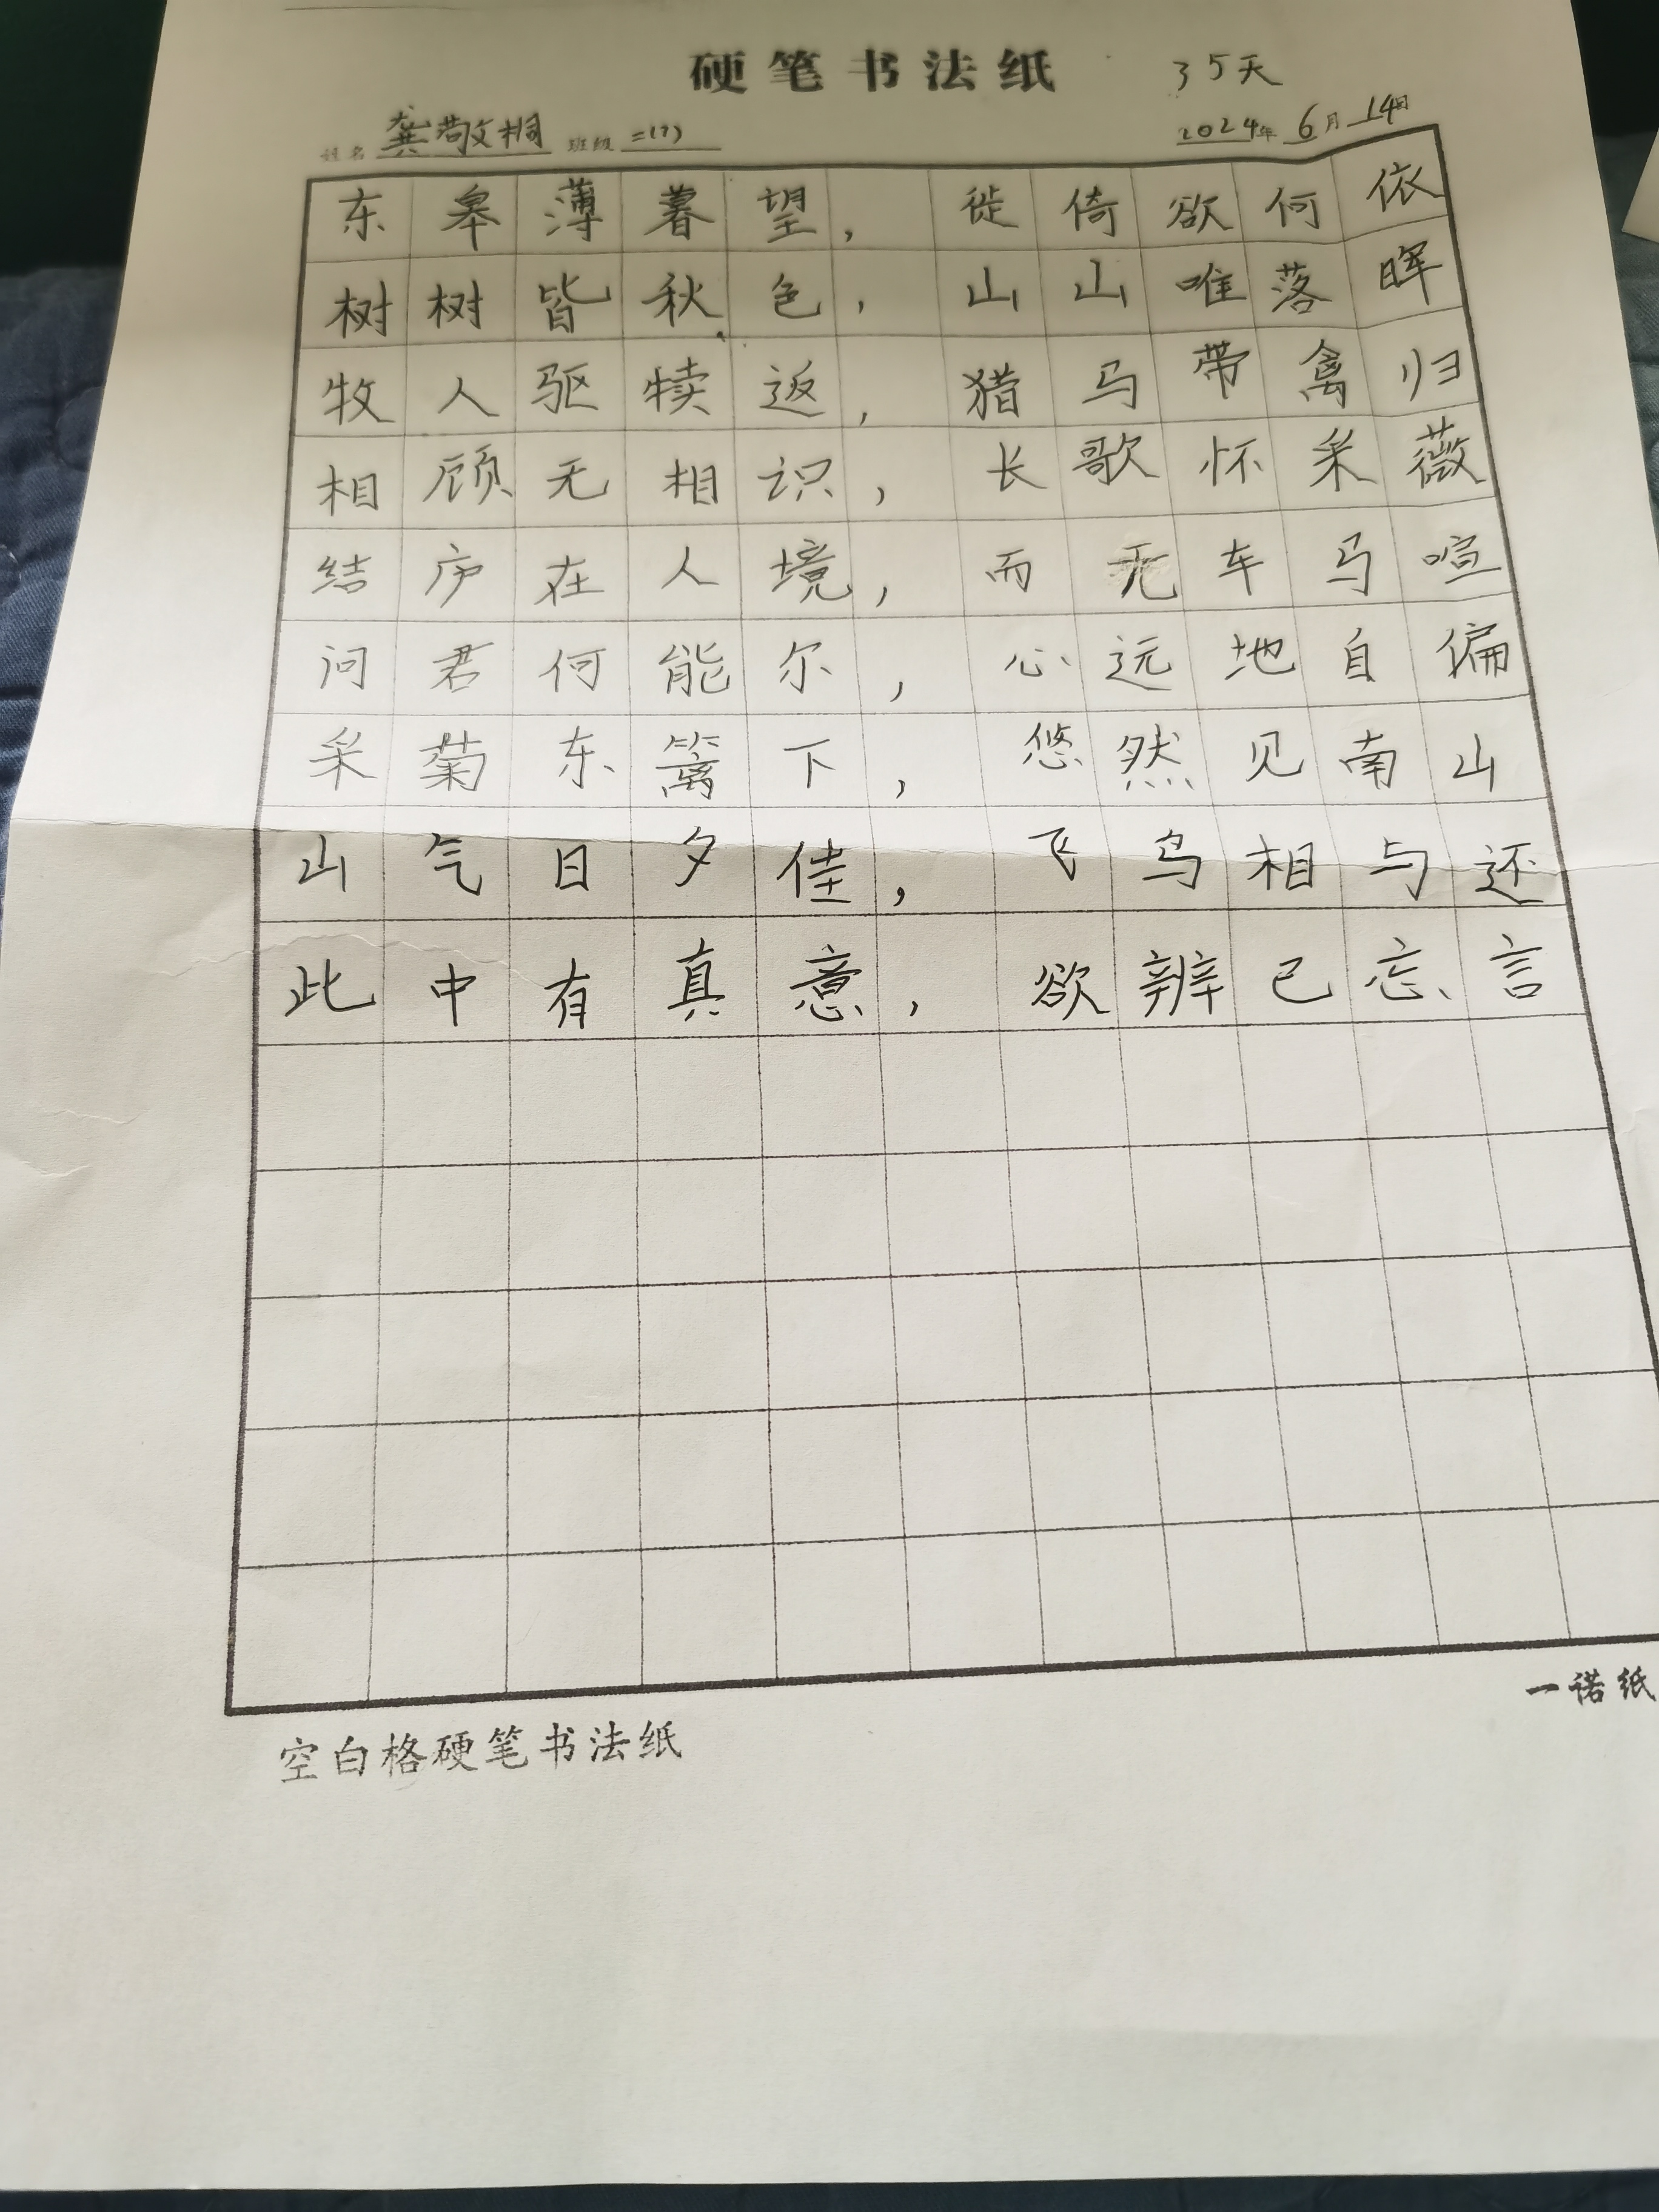 硬笔书法纸 35天
姓名 龚敬桐 班级 二(7) 2024年6月14日
东皋薄暮望，徙倚欲何依
树树皆秋色，山山唯落晖
牧人驱犊返，猎马带禽归
相顾无相识，长歌怀采薇
结庐在人境，而无车马喧
问君何能尔，心远地自偏
采菊东篱下，悠然见南山
山气日夕佳，飞鸟相与还
此中有真意，欲辨已忘言
空白格硬笔书法纸 一诺纸